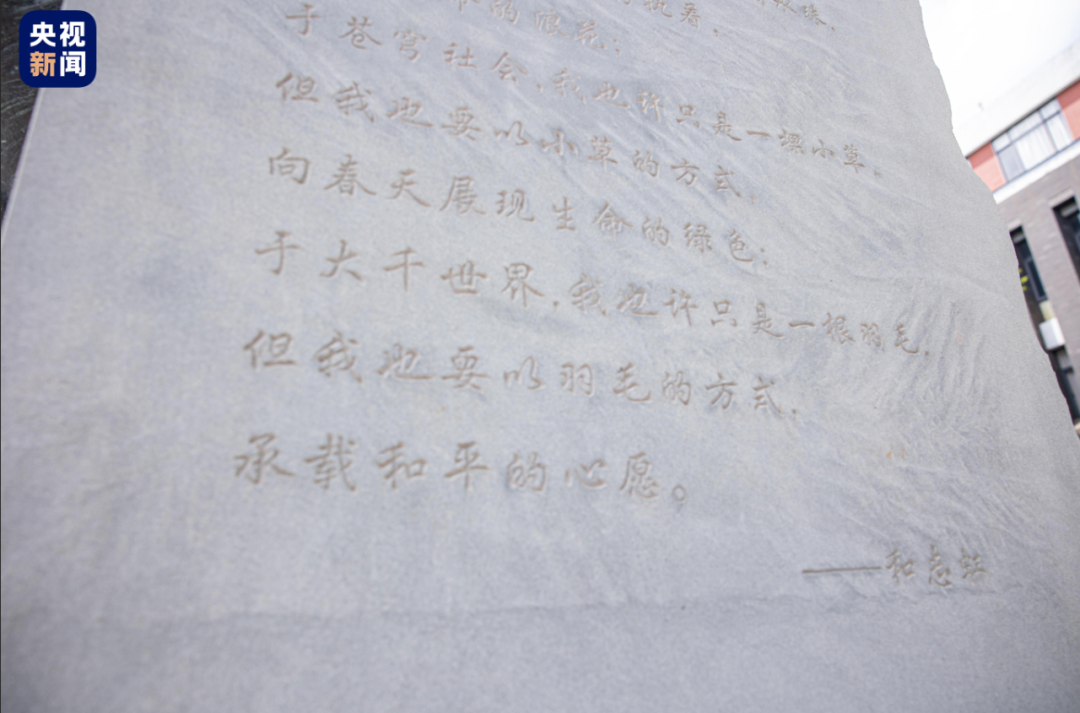 央视
新闻
的浪花;
于苍穹社会,我也许只是一棵小草,
但我也要以小草的方式,
向春天展现生命的绿色;
于大千世界,我也许只是一根羽毛,
但我也要以羽毛的方式,
承载和平的心愿。
——和志虹